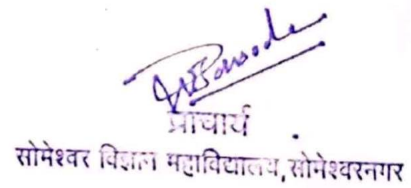 प्राचार्य
सोमेश्वर विज्ञान महाविद्यालय, सोमेश्वरनगर